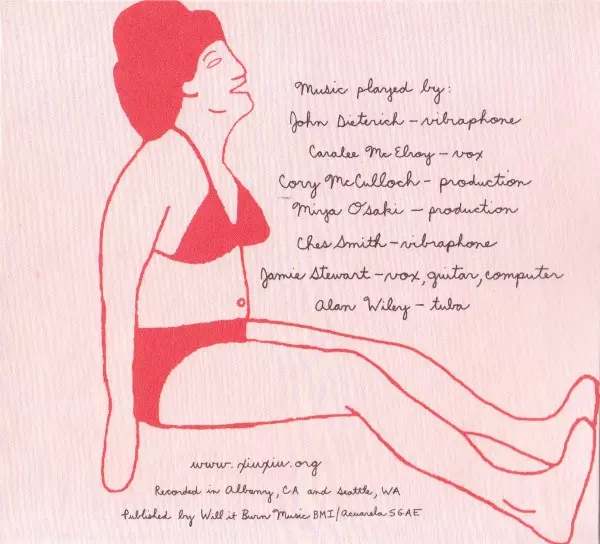 Music played by:
John Dieterich – vibraphone
Caralee McElroy – vox
Cory McCulloch – production
Miya Osaki – production
Ches Smith – vibraphone
Jamie Stewart – vox, guitar, computer
Alan Wiley – tuba
www.xiuxiu.org
Recorded in Albany, CA and Seattle, WA
Published by Will it Burn Music BMI/Acuarela SGAE